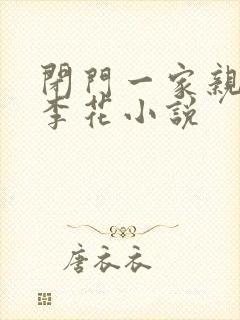 閉門一家親
李花小說
唐衣衣